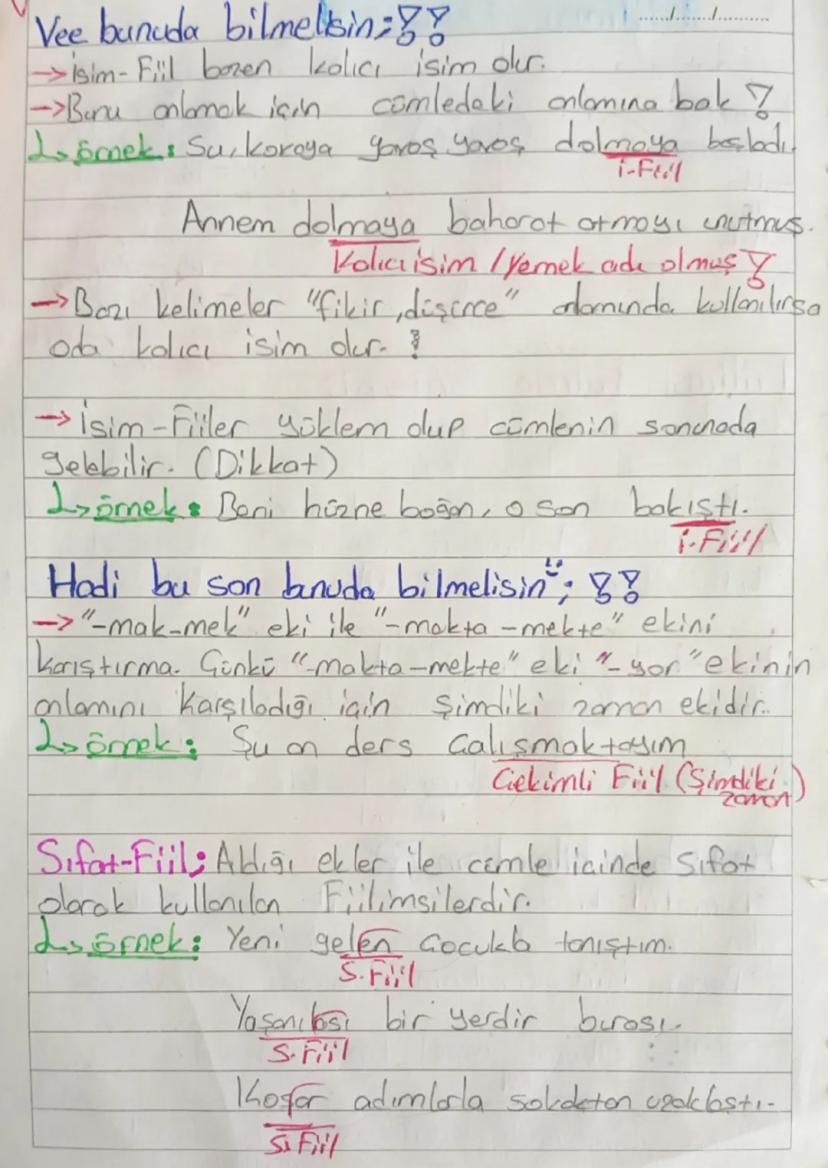 ....../....../............
Vee bunuda bilmelisin;!!
→İsim-Fiil bazen kalıcı isim olur.
→Bunu anlamak için cümledeki anlamına bak !
↳ örnek: Su, kovaya yavaş yavaş dolmaya başladı.
i-Fiil
Annem dolmaya baharat atmayı unutmuş.
Kalıcı isim /yemek adı olmuş !
→Bazı kelimeler "fikir, düşünce" anlamında kullanılırsa
oda kalıcı isim olur. !
→ İsim-Fiiler yüklem olup cümlenin sonunada
gelebilir. (Dikkat)
↳ örnek: Beni hüzne boğan, o son bakıştı.
i-Fiil
Hadi bu son bunuda bilmelisin; !!
→"-mak-mek" eki ile "-makta -mekte" ekini
karıştırma. Çünkü "-makta-mekte" eki "-yor" ekinin
anlamını karşıladığı için şimdiki zaman ekidir.
↳ örnek: Şu an ders çalışmaktayım
Çekimli Fiil (Şimdiki
zaman)
Sıfat-Fiil: Aldığı ekler ile cümle içinde sıfat
olarak kullanılan Fiilimsilerdir.
↳ örnek: Yeni gelen çocukla tanıştım.
S.Fiil
Yaşanılası bir yerdir burası.
S.Fiil
Koşar adımlarla sokaktan uzaklaştı.
S.Fiil